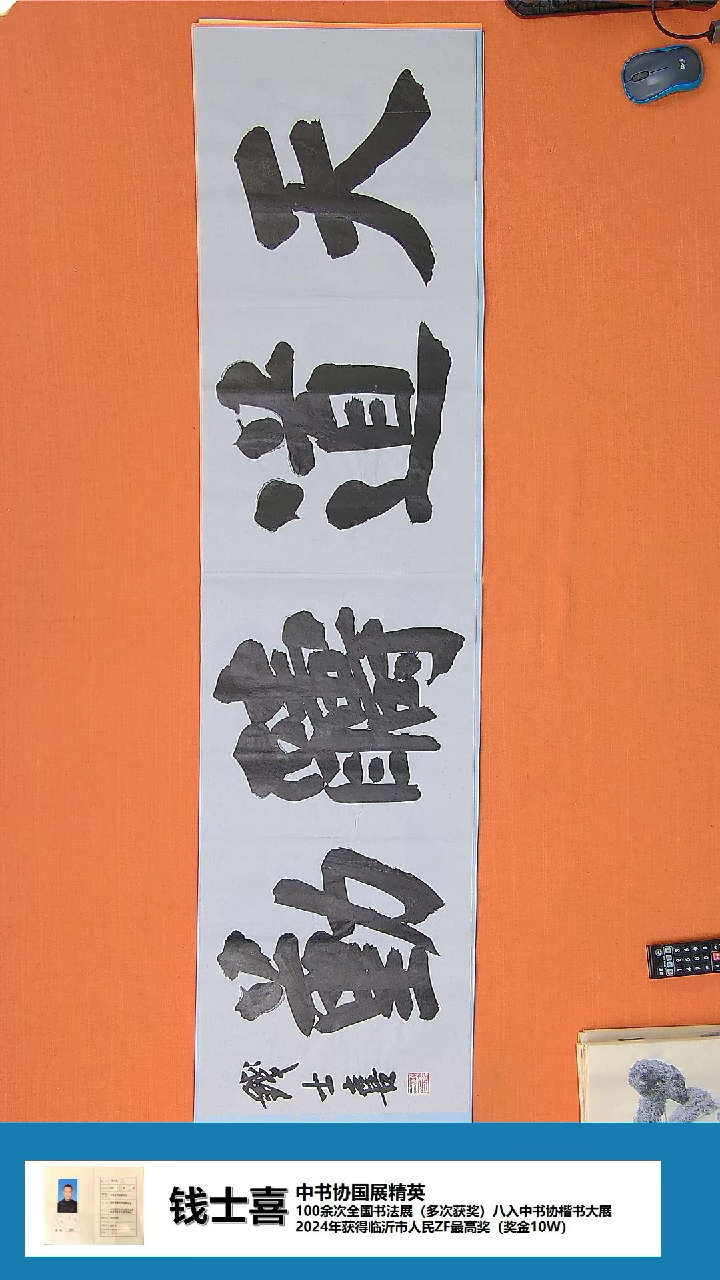 天道醻勤
錢士喜
钱士喜
中书协国展精英
100余次全国书法展（多次获奖）八入中书协楷书大展
2024年获得临沂市人民ZF最高奖（奖金10W）